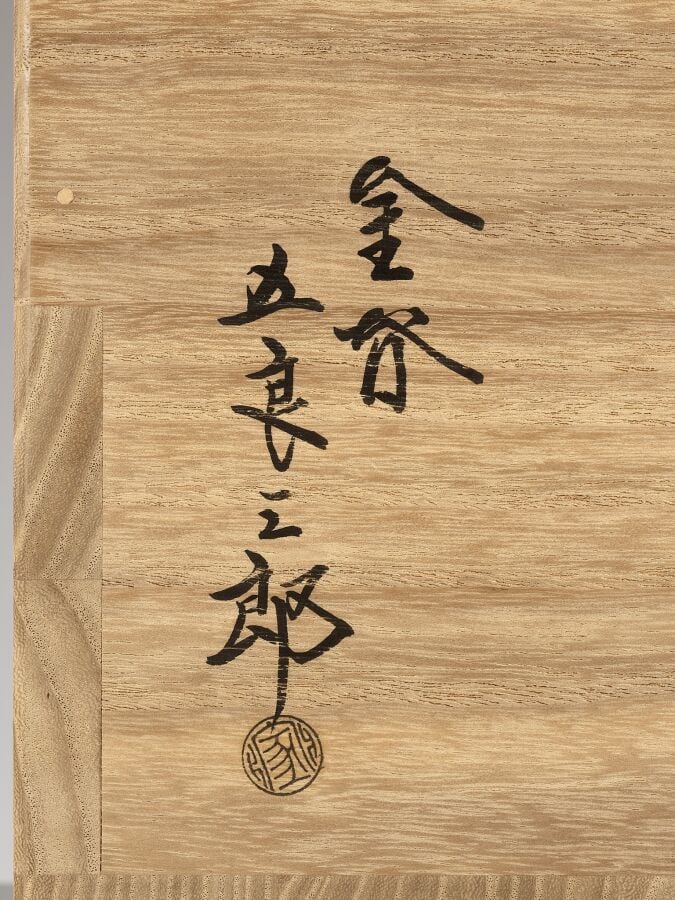 金谷
五良三郎